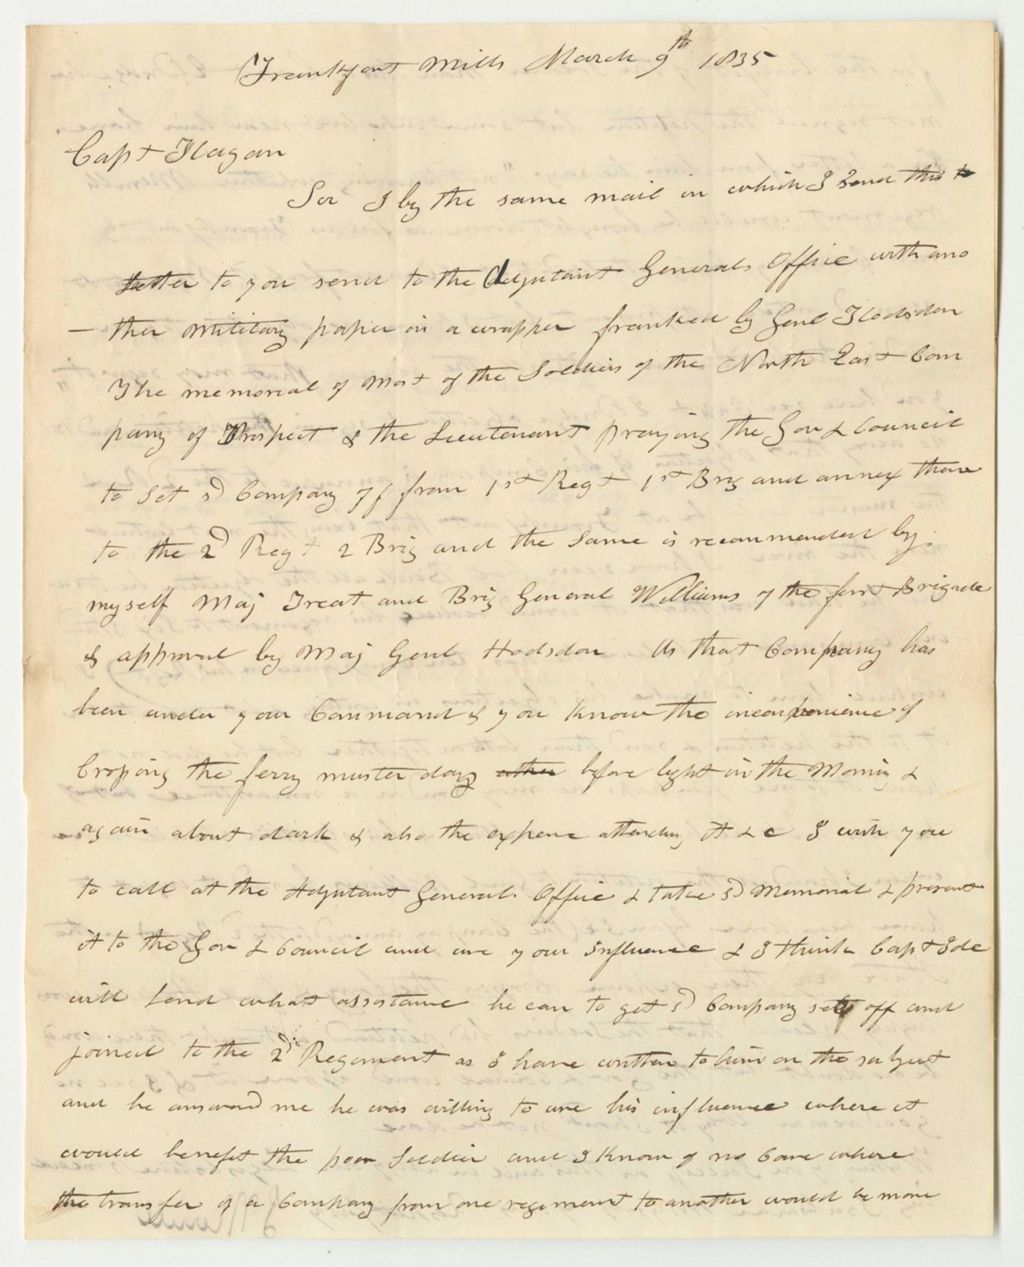 Frankfort Mills March 9th 1835
Capt Flagan
Sir I by the same mail in which I send this
letter to you send to the Adjutant Generals Office with ano
- ther Military paper in a wrapper franked by Genl Hodsdon
The memorial of most of the Soldiers of the North East Com
pany of Prospect & the Lieutenant praying the Gov & Council
to Set sd Company off from 1st Regt 1st Brig and annex them
to the 2d Regt 2 Brig and the Same is recommended by
myself Maj Treat and Brig General Williams of the first Brigade
& approved by Maj Genl Hodsdon As that Company has
been under your Command & you Know the inconvenience of
Croping the ferry muster days before light in the Morning &
again about dark & also the expence attending it &c I wish you
to call at the Adjutant Generals Office & take sd Memorial & present
it to the Gov & Council and use your Influence & I think Capt Ide
will lend what assistance he can to get sd Company set off and
joined to the 2d Regiment as I have written to him on the subject
and he answerd me he was willing to use his influence where it
would benefit the poor Soldier and I Know of no Case where
the transfer of a Company from one regiment to another would be more